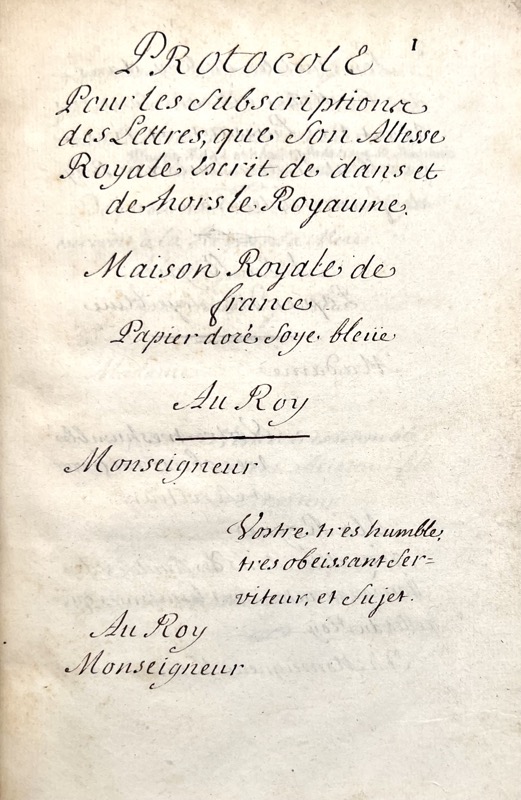 1
PROTOCOLE
Pour les Subscriptions
des Lettres, que Son Altesse
Royale Escrit de dans et
de hors le Royaume.
Maison Royale de
france
Papier doré Soye bleüe
Au Roy
Monseigneur
Vostre tres humble,
tres obeissant Ser=
viteur, et Sujet.
Au Roy
Monseigneur